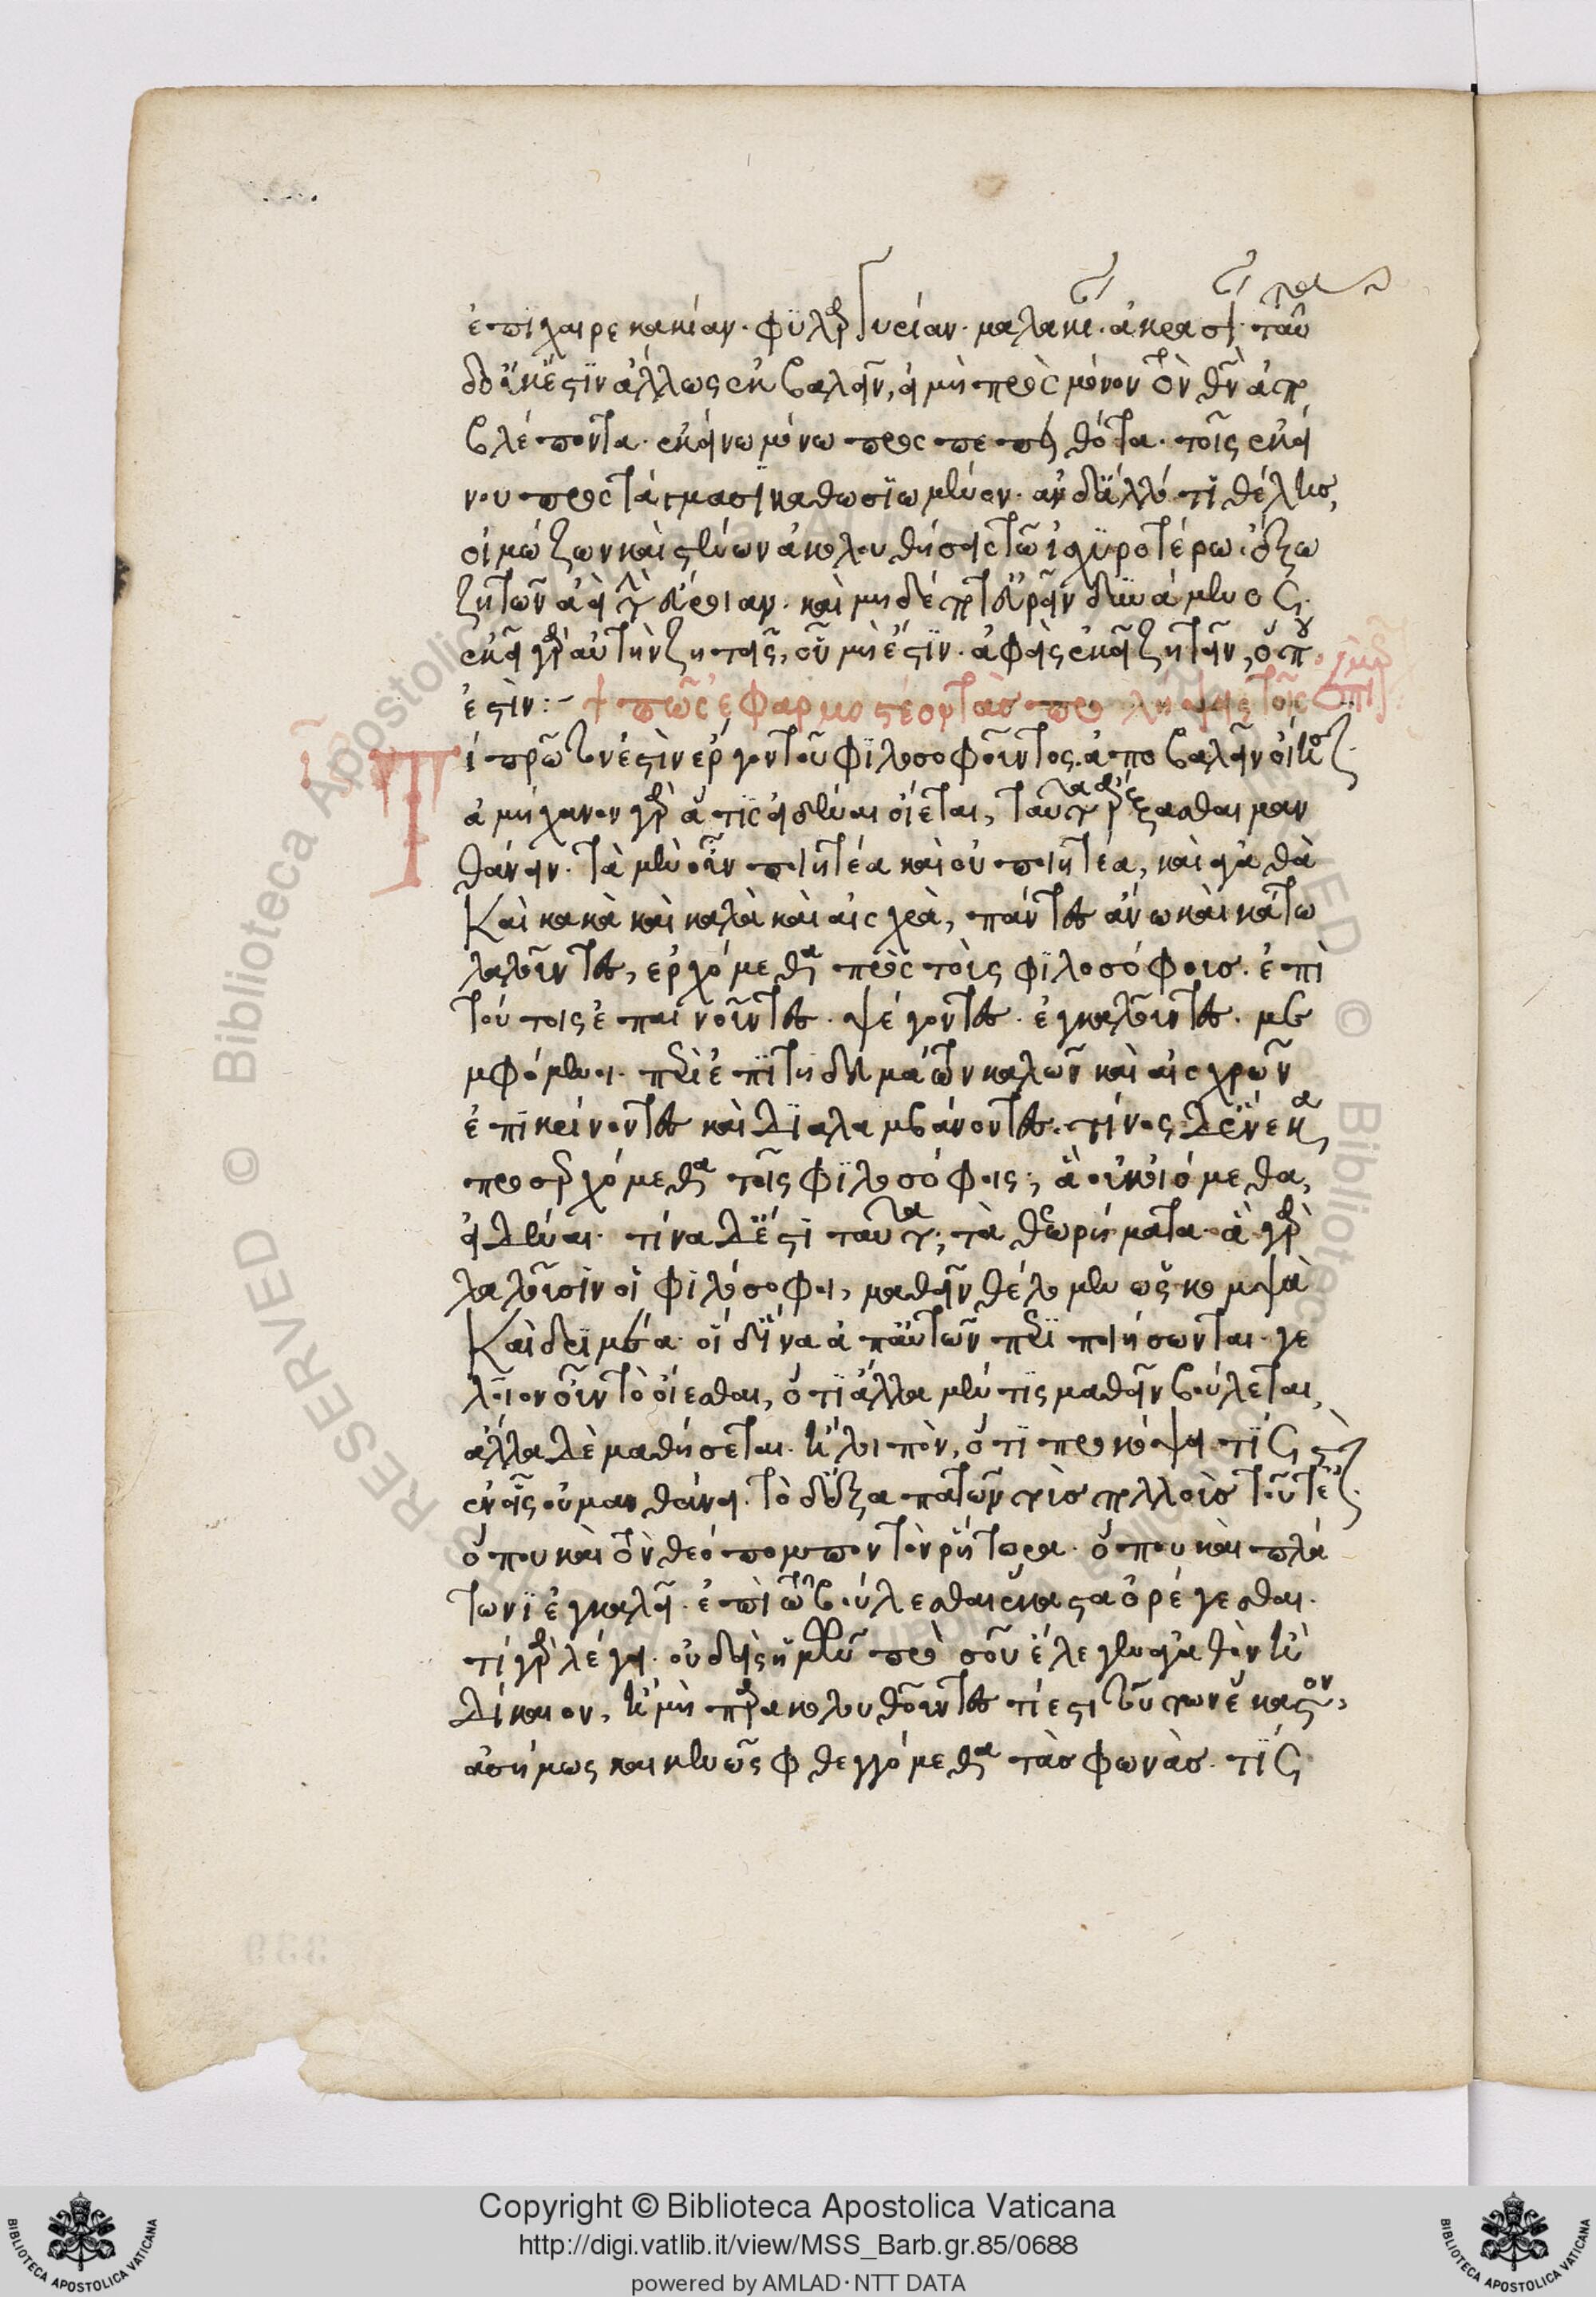 ἐπιχαιρεκακίαν· φιλαργυρίαν· μαλακίαν· ἀκρασίαν· ταῦτα
δ' οὐκ ἔστιν ἄλλως ἐκβαλεῖν, εἰ μὴ πρὸς μόνον τὸν θεὸν ἀπο
βλέποντα· ἐκείνω μόνω προσπεπονθότα· τοῖς ἐκεί
νου προστάγμασι καθωσιωμένον· ἂν δ' ἄλλό τι θέλης,
οἰμώζων καὶ στένων ἀκολουθήσεις τῶ ἰσχυροτέρω. ἔξω
ζητῶν ἀεὶ τὴν εὔροιαν· καὶ μηδέποτ' εὑρεῖν δυνάμενος·
ἐκεῖ γὰρ αὐτὴν ζητεῖς, οὗ μὴ ἔστιν· ἀφεὶς ἐκεῖ ζητεῖν, ὅπου
ἐστὶν:- + πῶς ἐφαρμοστέον τὰς προλήψεις τοῖς ἐπὶ μέρους
Τί πρῶτόν ἐστιν ἔργον τοῦ φιλοσοφοῦντος. ἀποβαλεῖν οἴησιν·
ἀμήχανον γὰρ ἅ τις εἰδέναι οἴεται, ταῦτα ἄρξασθαι μαν
θάνειν· τὰ μὲν οὖν ποιητέα καὶ οὐ ποιητέα, καὶ ἀγαθὰ
Καὶ κακὰ καὶ καλὰ καὶ αἰσχρὰ, πάντες ἄνω καὶ κάτω
λαλοῦντες, ἐρχόμεθα πρὸς τοὺς φιλοσόφους· ἐπὶ
τούτοις ἐπαινοῦντες· ψέγοντες· ἐγκαλοῦντες· με
μφόμενοι· περὶ ἐπιτηδευμάτων καλῶν καὶ αἰσχρῶν
ἐπικρίνοντες καὶ διαλαμβάνοντες· τίνος δ' ἕνεκα
προσερχόμεθα τοῖς φιλοσόφοις; ἃ οὐκ οἰόμεθα,
εἰδέναι· τίνα δ' ἔστι ταῦτα; τὰ θεωρήματα· ἃ γὰρ
λαλοῦσιν οἱ φιλόσοφοι, μαθεῖν θέλομεν ὡς κομψὰ
Καὶ δριμέα· οἱ δ' ἵνα ἀπ' αὐτῶν περιποιήσωνται· γε
λοῖον οὖν τὸ οἴεσθαι, ὅτι ἄλλα μέν τις μαθεῖν βούλεται,
ἄλλα δὲ μαθήσεται· ἢ λοιπὸν, ὅτι προκόψει τὶς
ἐν οἷς οὐ μανθάνει· τὸ δ' ἐξαπατῶν τοὺς πολλοὺς τοῦτ' ἔστιν
ὅπου καὶ τὸν θεόπομπον τὸν ῥήτορα· ὅπου καὶ πλά
τωνι ἐγκαλεῖ· ἐπὶ τῶ βούλεσθαι ἕκαστα ὁρίζεσθαι·
τί γὰρ λέγει· οὐδεὶς ἡμῶν πρὸ σοῦ ἔλεγεν ἀγαθὸν ἢ
δίκαιον, ἢ μὴ παρακολουθοῦντες τί ἐστι τούτων ἕκαστον,
ἀσήμως καὶ κενῶς φθεγγόμεθα τὰς φωνὰς· τίς
Copyright © Biblioteca Apostolica Vaticana
http://digi.vatlib.it/view/MSS_Barb.gr.85/0688
powered by AMLAD·NTT DATA